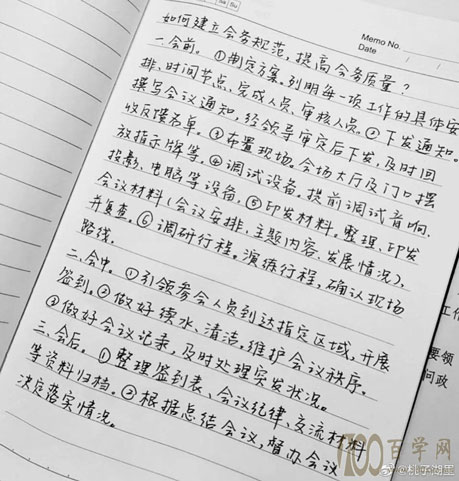 Sa Su
Memo No.
Date / /
如何建立会务规范，提高会务质量？
一.会前。①制定方案。列明每一项工作的具体安
排、时间节点、完成人员、审核人员。②下发通知。
撰写会议通知，经领导审定后下发，及时回
收反馈名单。③布置现场。会场大厅及门口摆
放指示牌等。④调试设备。提前调试音响、
投影、电脑等设备。⑤印发材料。整理、印发
会议材料（会议安排、主题内容、发展情况），
并复查。⑥调研行程。演练行程，确认现场
路线。
二.会中。①引领参会人员到达指定区域，开展
签到。②做好续水、清洁。维护会议秩序。
③做好会议记录，及时处理突发状况。
三.会后。①整理签到表、会议纪律、交流材料
等资料归档。②根据总结会议，督办会议
决定落实情况。
要领
问政
100百学网
@桃子湖里